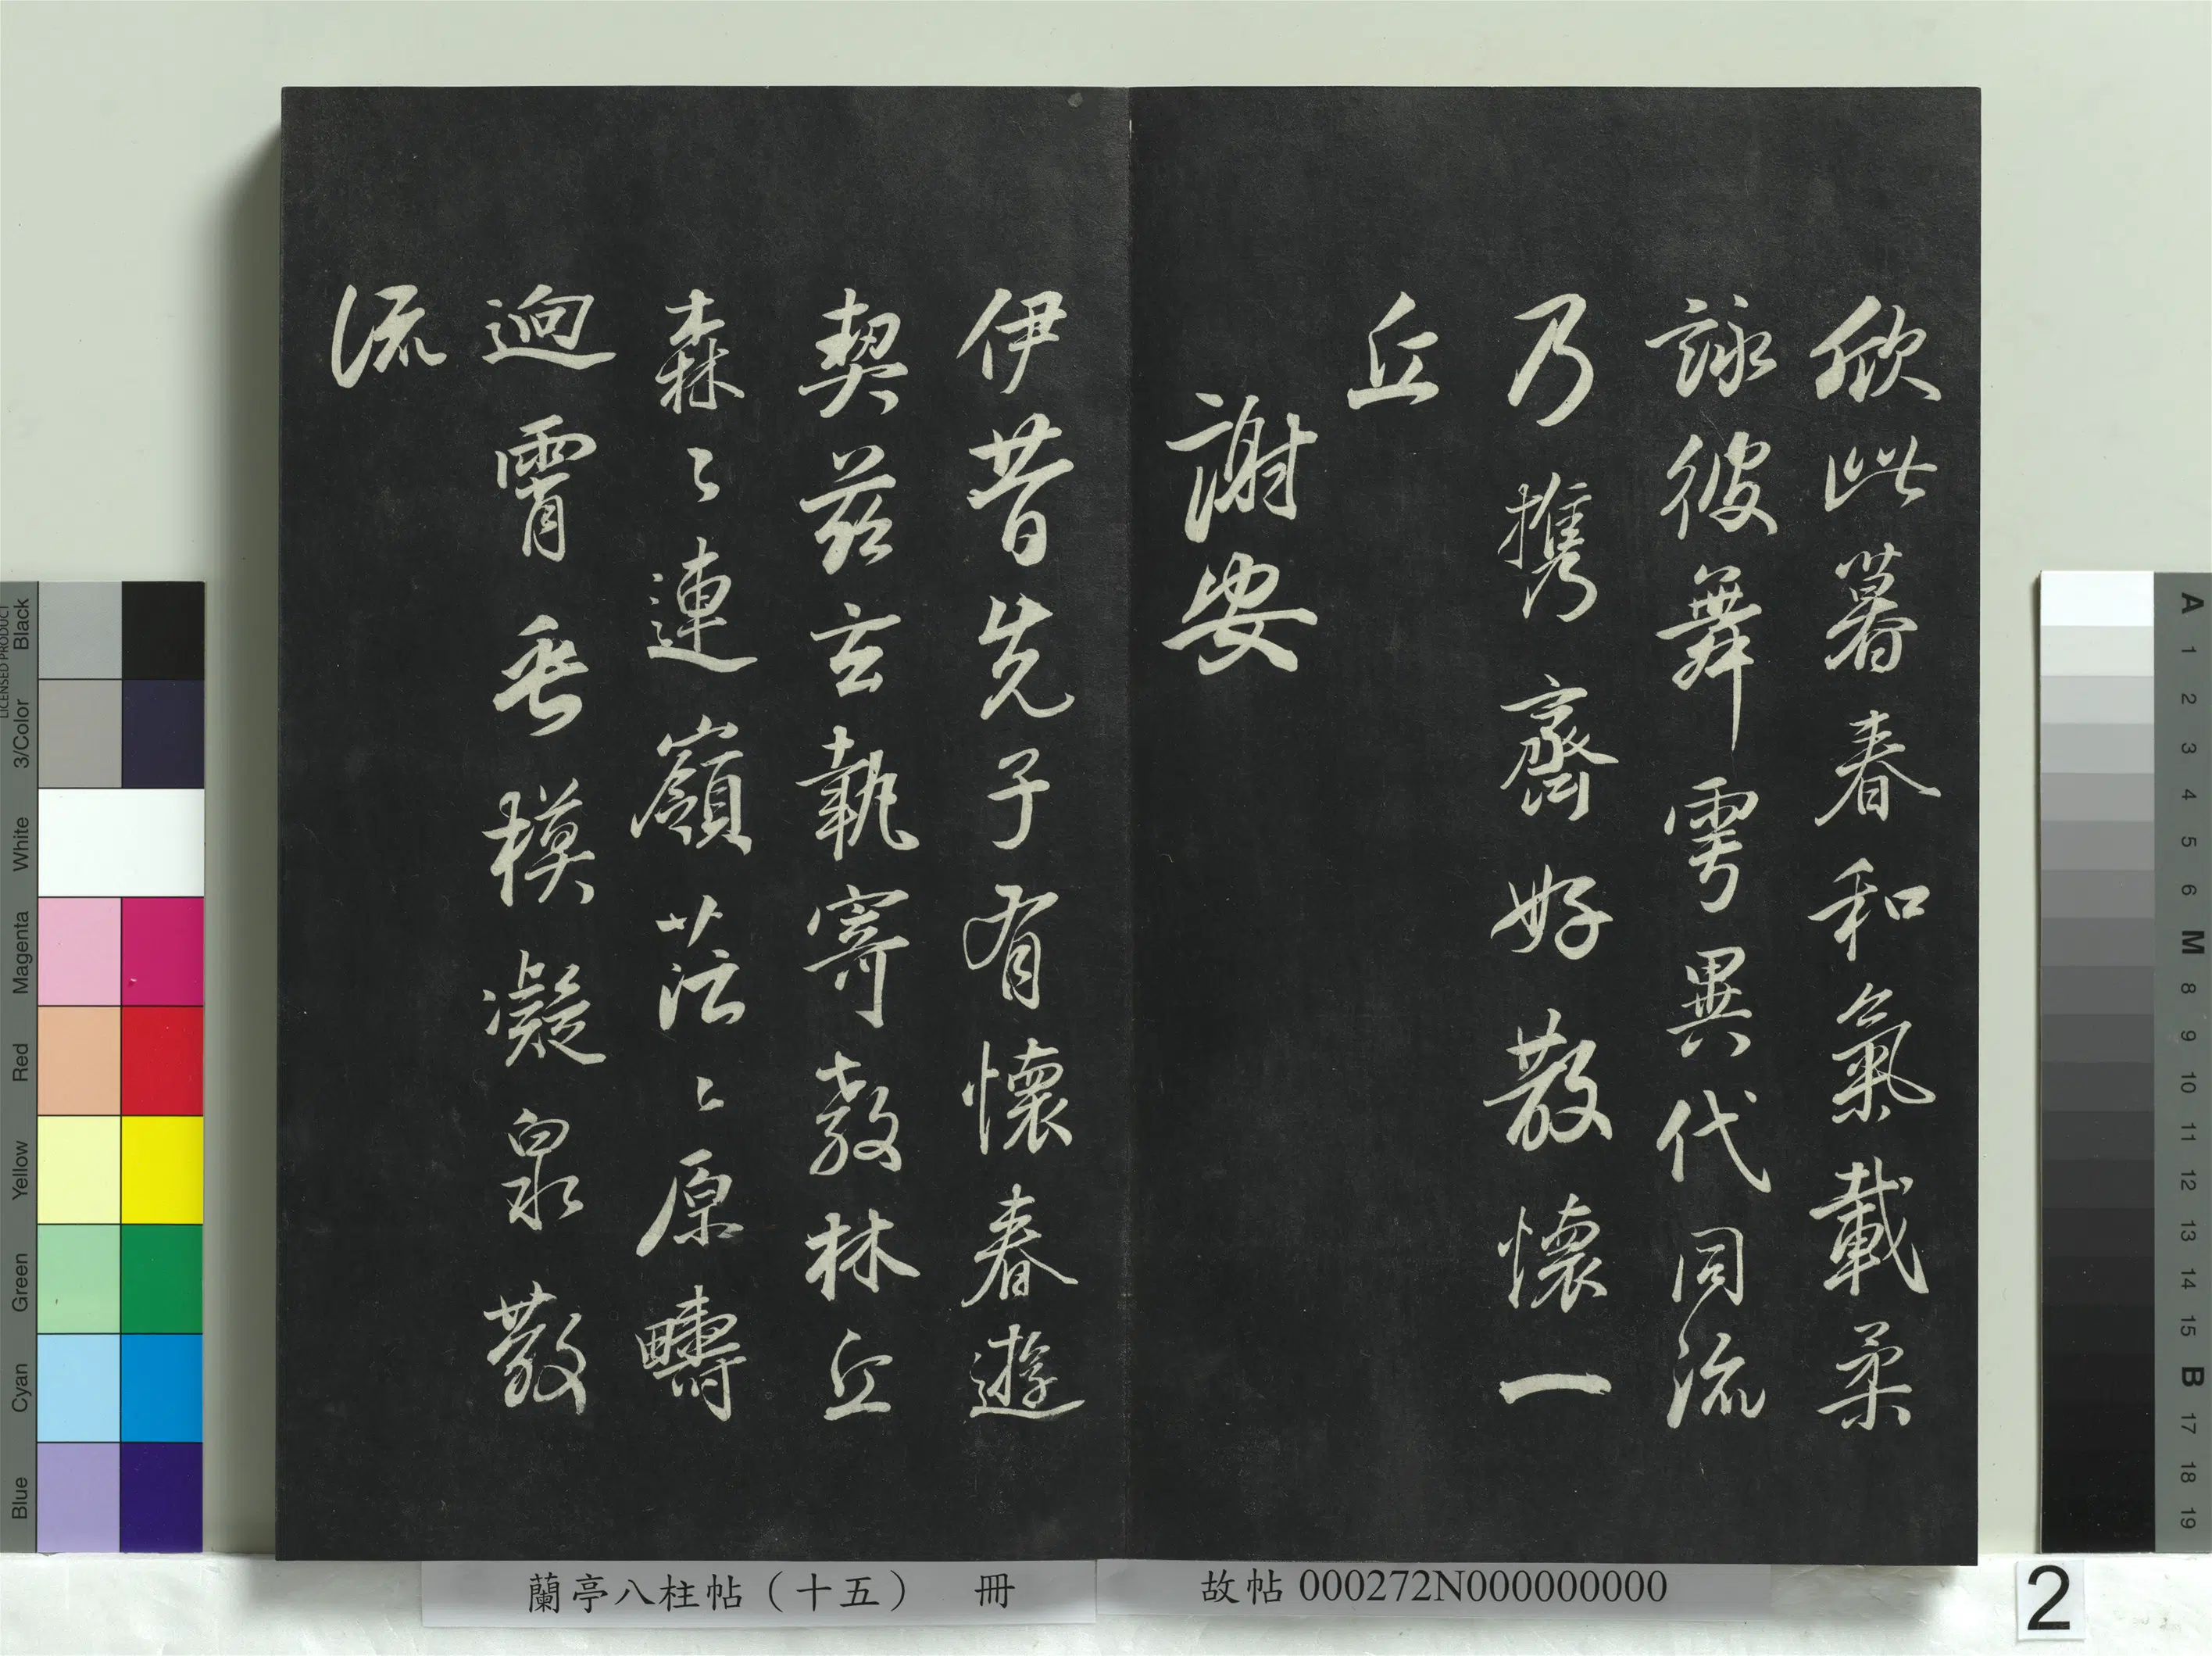 欣此暮春和氣載柔
詠彼舞雩異代同流
乃携齊好散懷一
丘
謝安
伊昔先子有懷春遊
契茲言執寄敖林丘
森〻連嶺茫〻原疇
逈霄垂模凝泉散
流
蘭亭八柱帖（十五） 冊
故帖 000272N000000000
2
Black
3/Color
White
Magenta
Red
Yellow
Green
Cyan
Blue
LICENSED PRODUCT
A 1 2 3 4 5 6 M 8 9 10 11 12 13 14 15 B 17 18 19